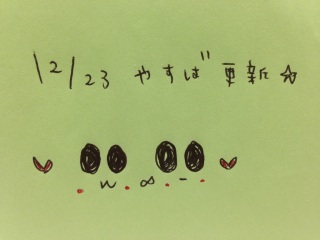 12/23 やすば 更新☆